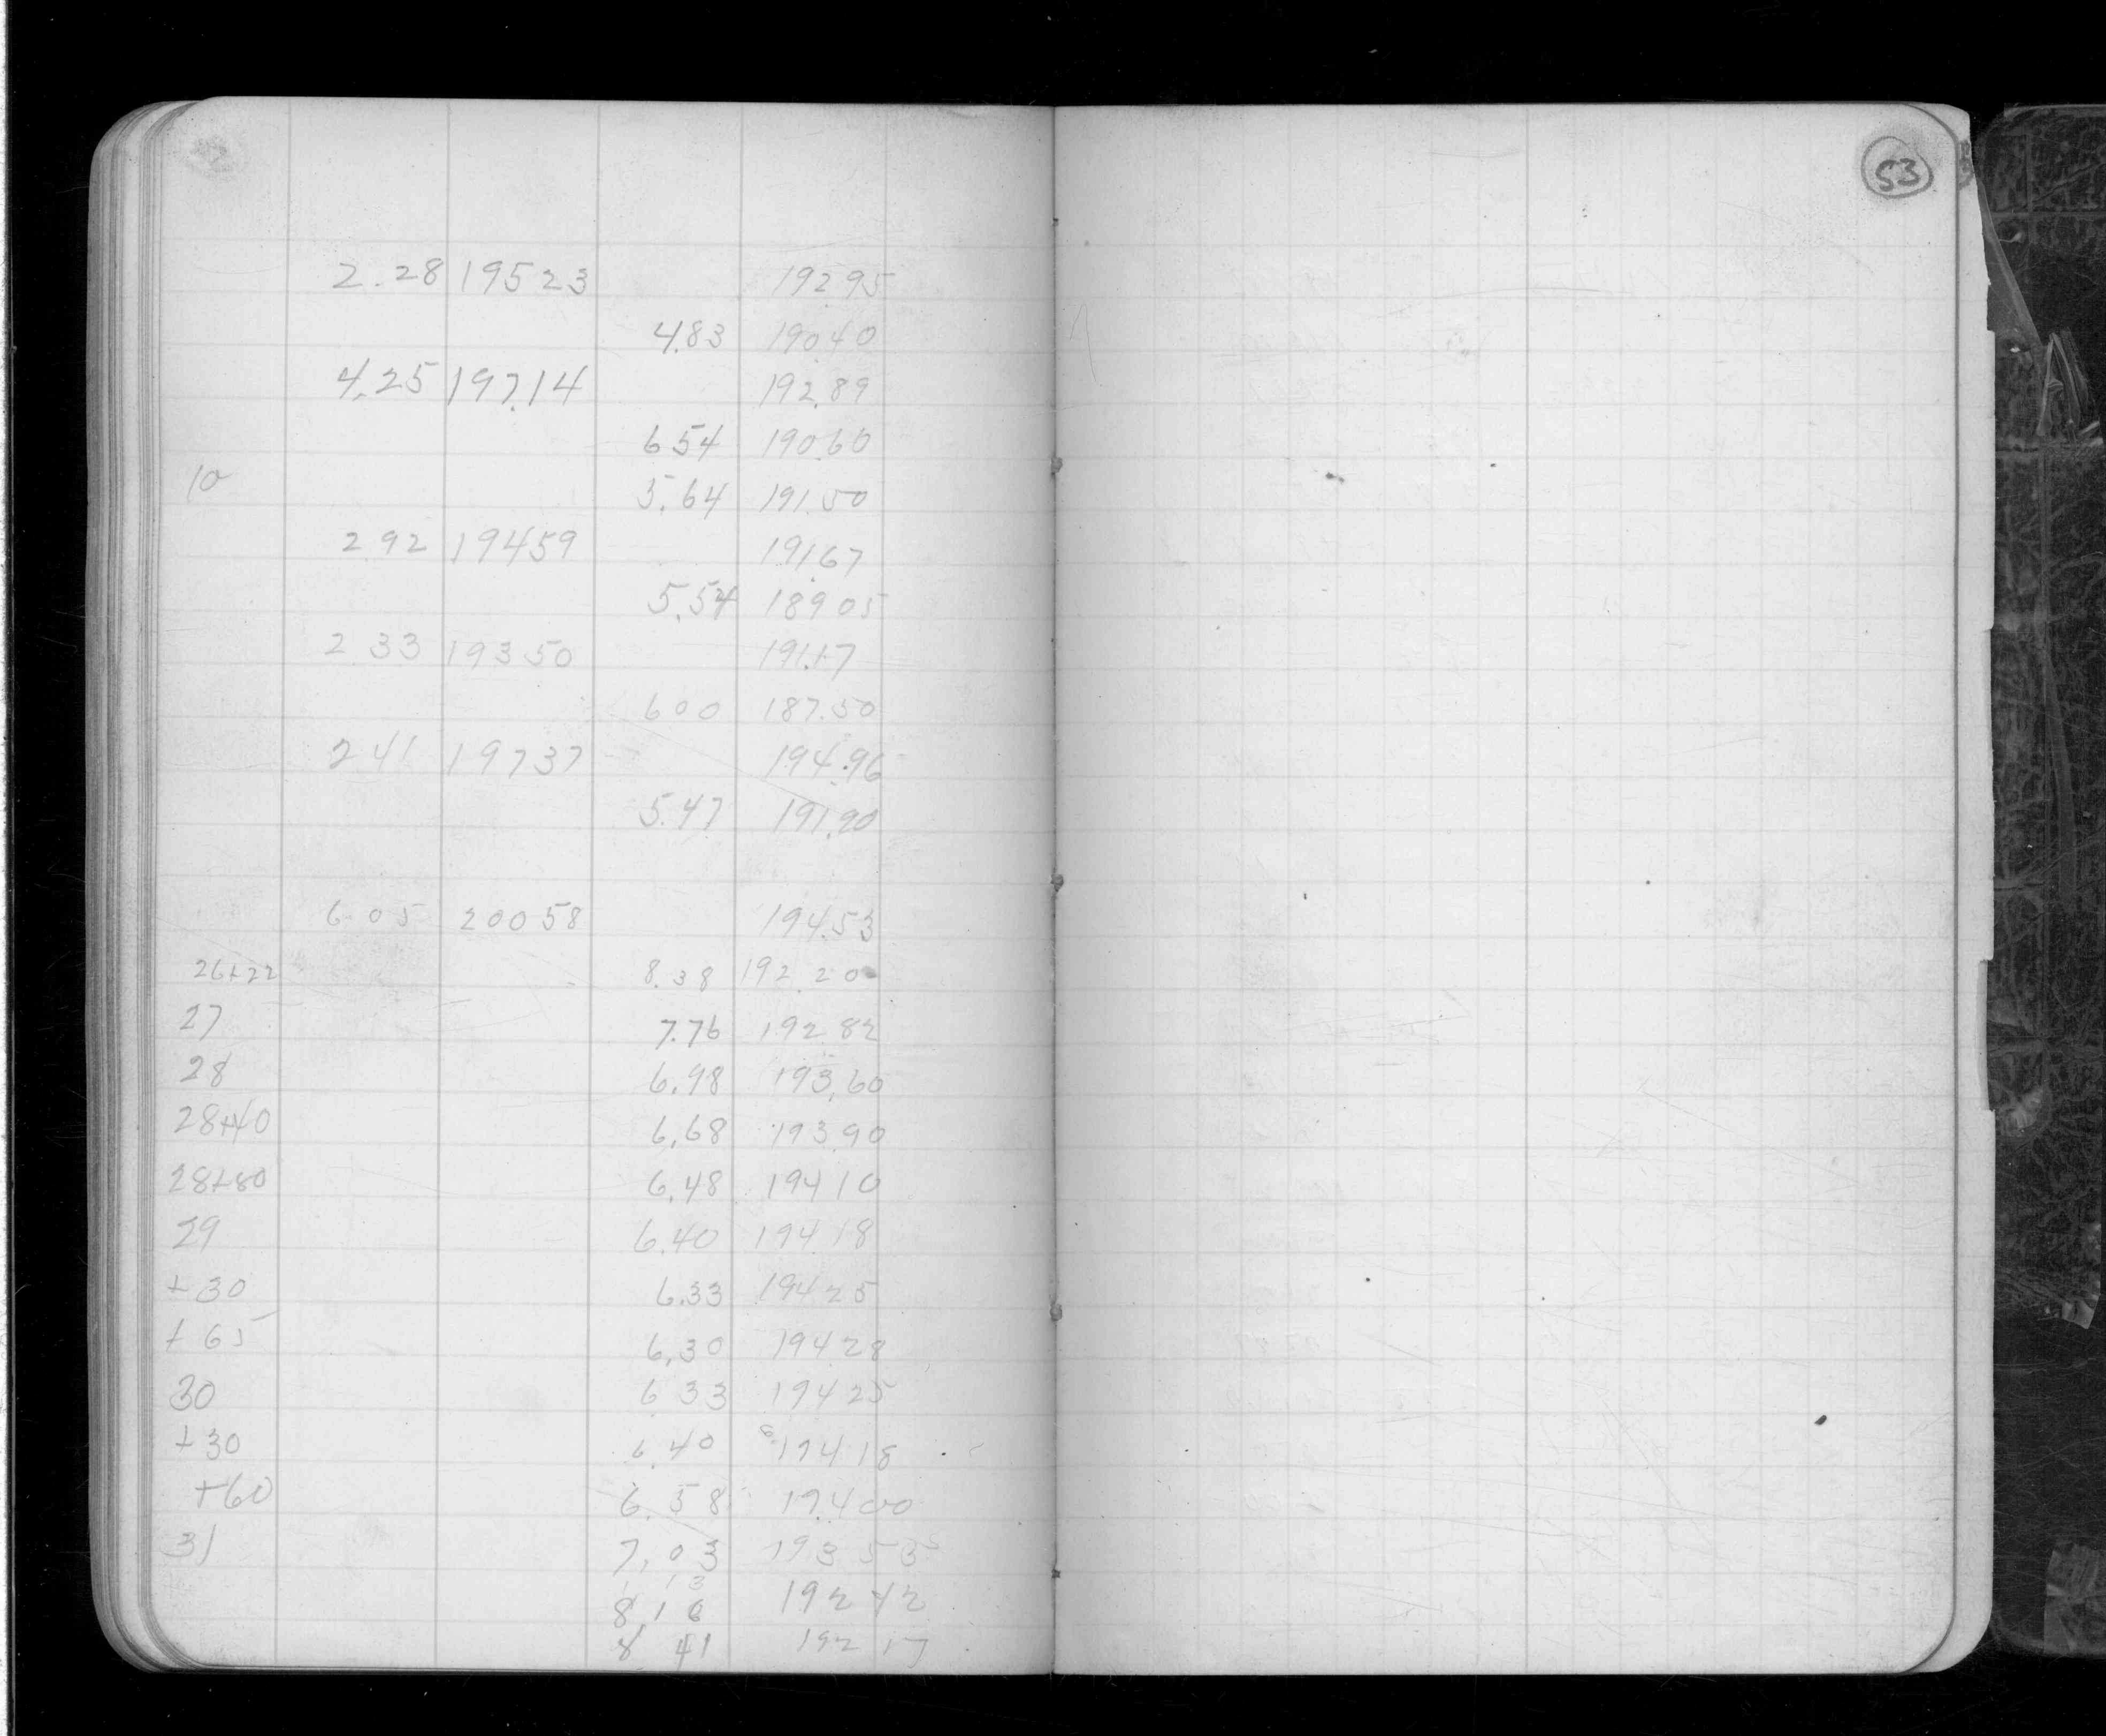 53
2.28 19523 19295
4.83 190.40
4.25 197.14 192.89
6 54 190.60
10 5.64 191.50
2 92 19459 191.67
5.54 189 05
2 33 19350 191.17
6 00 187.50
2 41 19737 194.96
5.47 191.90
6 05 20058 194.53
26+22 8.38 192.20
27 7.76 192 82
28 6.98 193.60
28+40 6.68 193 90
28+80 6.48 194 10
29 6.40 194 18
+30 6.33 194 25
+65 6.30 194 28
30 6 33 194 25
+30 6.40 194 18
+60 6.58 194 00
31 7.03 193 55
8 16 192 42
8 41 192 17